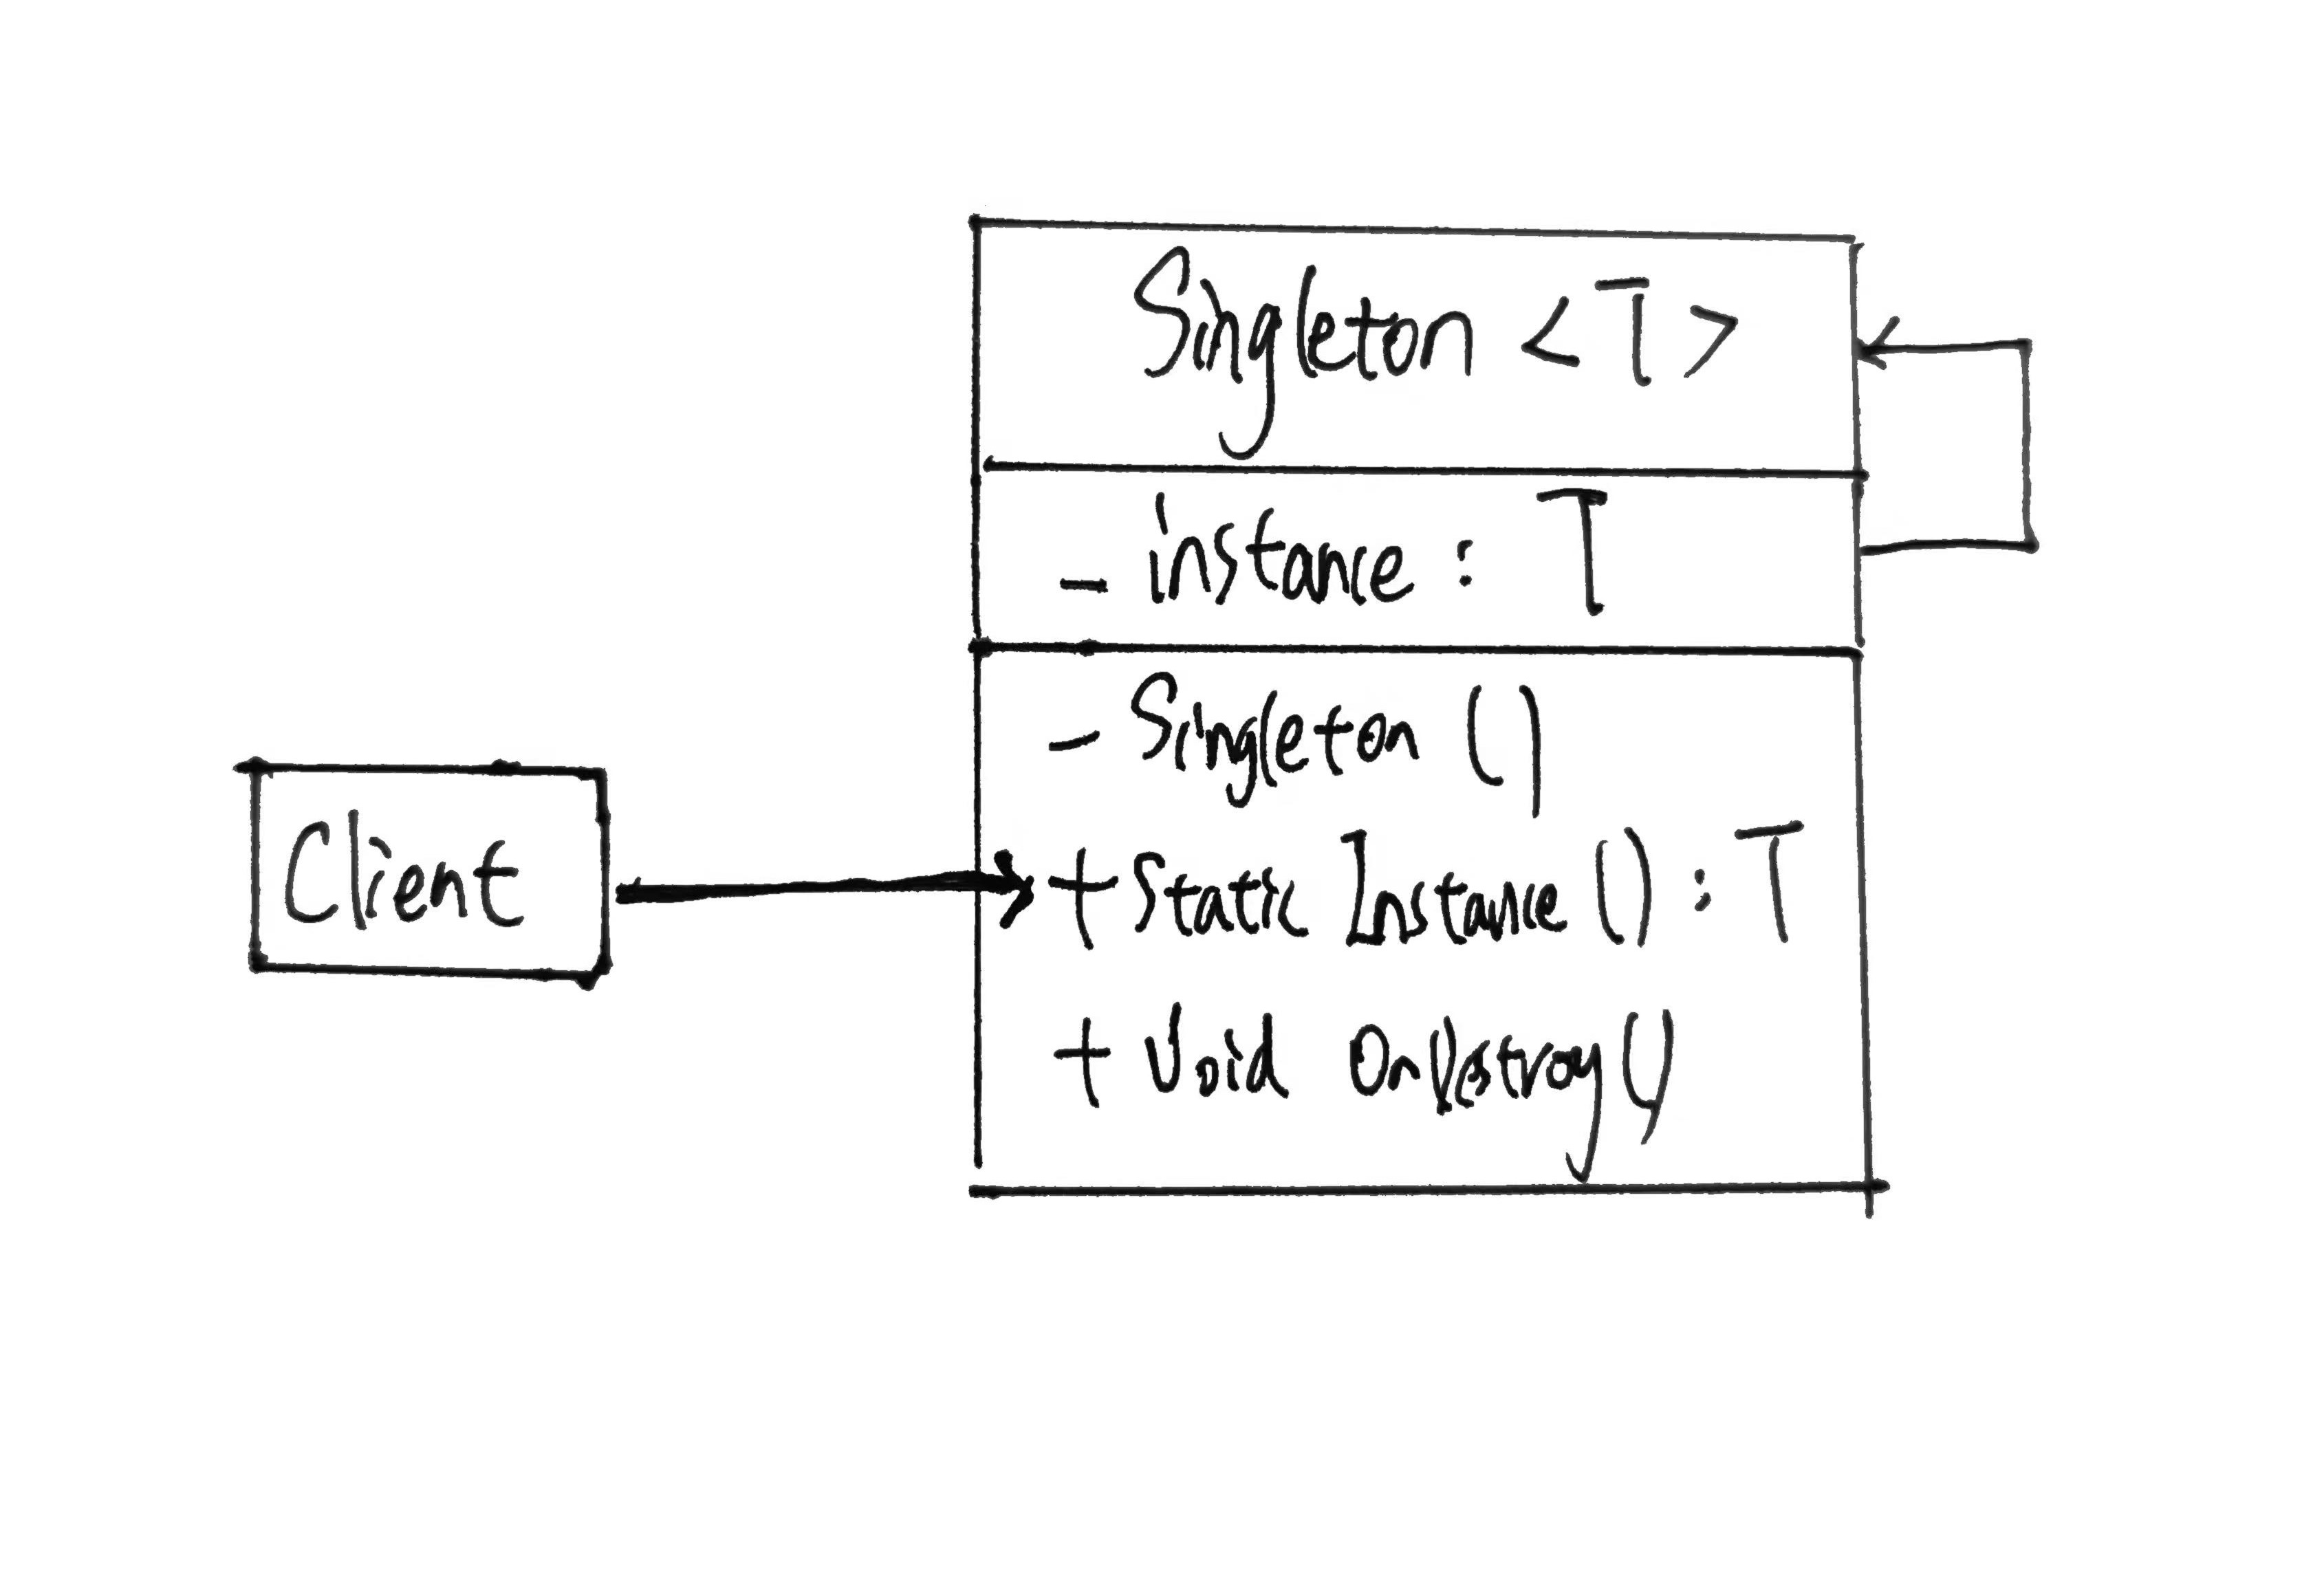 Singleton <T>
- instance : T
- Singleton ()
Client
+ Static Instance () : T
+ Void OnDestroy()